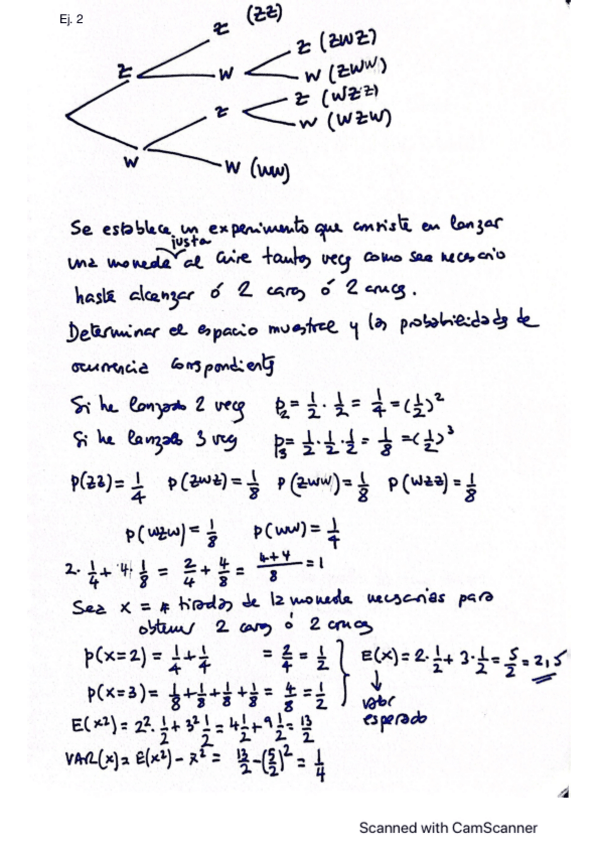 Ej. 2
z (zz)
z (zwz)
z
w
w (zww)
z (wzz)
z
w (wzw)
w
w (ww)
Se establece un experimento que consiste en lanzar
una moneda justa al aire tantas veces como sea necesario
hasta alcanzar ó 2 caras ó 2 cruces.
Determinar el espacio muestral y las probabilidades de
ocurrencia correspondientes
Si he lanzado 2 veces p₂ = 1/2 · 1/2 = 1/4 = (1/2)²
Si he lanzado 3 veces p₃ = 1/2 · 1/2 · 1/2 = 1/8 = (1/2)³
P(zz) = 1/4 P(zwz) = 1/8 P(zww) = 1/8 P(wzz) = 1/8
P(wzw) = 1/8 P(ww) = 1/4
2 · 1/4 + 4 · 1/8 = 2/4 + 4/8 = (4+4)/8 = 1
Sea x = # tiradas de la moneda necesarias para
obtener 2 caras ó 2 cruces
P(x=2) = 1/4 + 1/4 = 2/4 = 1/2
P(x=3) = 1/8 + 1/8 + 1/8 + 1/8 = 4/8 = 1/2
E(x) = 2 · 1/2 + 3 · 1/2 = 5/2 = 2,5
↓
valor
esperado
E(x²) = 2² · 1/2 + 3² 1/2 = 4 1/2 + 9 1/2 = 13/2
VAR(x) = E(x²) - x̄² = 13/2 - (5/2)² = 1/4
Scanned with CamScanner